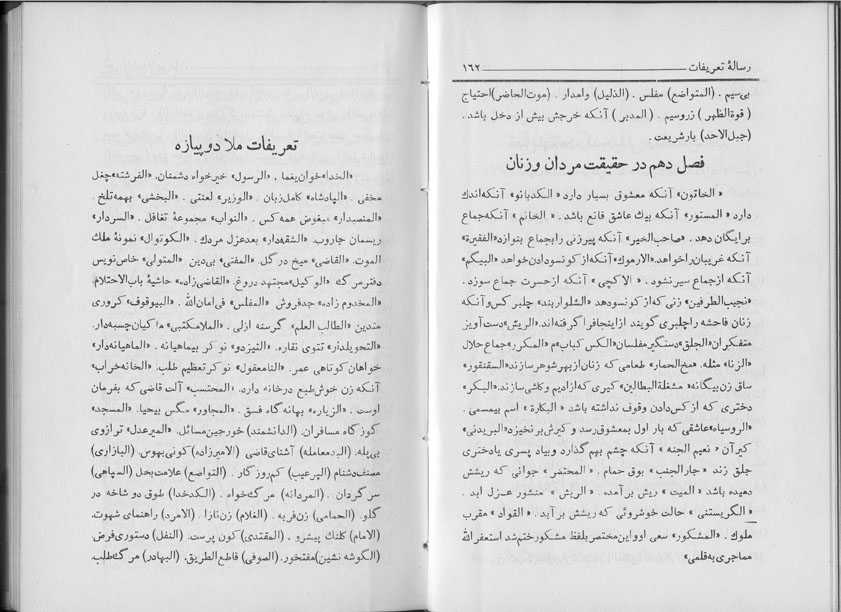 رسالهٔ تعریفات ۱۶۲
بی‌سیم . (المتواضع) مفلس . (الذلیل) وامدار . (موت‌الحاضر) احتیاج
(قوةالظهر) زروسیم . (المدبر) آنکه خرجش بیش از دخل باشد .
(جبل‌الاحد) بارشریعت .
فصل دهم در حقیقت مردان وزنان
«الخاتون» آنکه معشوق بسیار دارد «الکدبانو» آنکه‌اندک
دارد «المستور» آنکه بیک عاشق قانع باشد . «الخانم» آنکه‌جماع
برایگان دهد . «صاحب‌الخیر» آنکه پیرزنی رابجماع بنوازد «الفقیرة»
آنکه غریبان راخواهد. «الارموك» آنکه‌از کونسودادن‌خواهد «البیگم»
آنکه ازجماع سیرنشود . «الاکچی» آنکه ازحسرت جماع سوزد .
«نجیب‌الطرفین» زنی‌که‌از کونسودهد «الشلواربند» چلبرکس‌وآنکه
زنان فاحشه راچلبری گویند ازاینجافراگرفته‌اند. «الریش» دست‌آویز
متفکران «الجلق» دستگیرمفلسان «الکس کباب» م «المکرر» جماع‌حلال
«الزنا» مثله. «مخ‌الحمار» طعامی که زنان‌ازبهرشوهرسازند «السقنقور»
ساق زن‌بیگانه «مشغلةالبطالین» کیری که‌ازادیم وکاشی‌سازند. «البکر»
دختری که از کس‌دادن وقوف نداشته باشد «البکارة» اسم بیمسمی .
«الروسیاه» عاشقی که بار اول بمعشوق‌رسد و کیرش برنخیزد «البریدنی»
کیرآن «نعیم الجنه» آنکه چشم بهم گذارد وبیاد پسری یادختری
جلق زند «جارالجنب» بوق حمام . «المحتضر» جوانی که ریشش
دمیده باشد «المیت» ریش برآمده. «الریش» منشور عزل ابد .
«الگریستنی» حالت خوشروئی که ریشش برآید . «القواد» مقرب
ملوك . «المشکور» سعی اوواین‌مختصر بلفظ مشکورختم‌شد استغفرالله
مماجری به‌قلمی»
تعریفات ملا دوپیازه
«الخدا» خوان‌یغما . «الرسول» خیرخواه دشمنان. «الفرشته» چغل
مخفی . «الپادشاه» کامل‌زبان . «الوزیر» لعنتی . «البخشی» بهمه‌تلخ .
«المنصبدار» مبغوض همه‌کس . «النواب» مجموعهٔ تغافل . «السردار»
ریسمان جاروب. «الشقه‌دار» بعدعزل مردك . «الکوتوال» نمونهٔ ملك
الموت. «القاضی» میخ درگل. «المفتی» بی‌دین «المتولی» خاص‌نویس
دفترمرگ «الوکیل» مجتهد دروغ. «القاضی‌زاده» حاشیهٔ باب‌الاحتلام.
«المخدوم زاده» جدفروش «المفلس» فی‌امان‌الله . «البیوقوف» کروری
متدین «الطالب العلم» گرسنه ازلی . «الملامکتبی» ماکیان‌چسبه‌دار.
«التحویلدار» تتوی نقاره. «التیزدو» نوکر بیماهیانه . «الماهیانه‌دار»
خواهان کوتاهی عمر. «النامعقول» نوکرتعظیم طلب. «الخانه‌خراب»
آنکه زن خوش‌طبع درخانه دارد. «المحتسب» آلت قاضی که بفرمان
اوست . «الزیاره» بهانه‌گاه فسق . «المجاور» مگس بیحیا. «المسجد»
گوزگاه مسافران. (الدانشمند) خورجین‌مسائل. «المیرعدل» ترازوی
بی‌پله. (البدمعامله) آشنای‌قاضی (الامیرزاده) کونی‌بهوس. (البازاری)
مصنف‌دشنام (الپرعیب) کم‌روزگار . (التواضع) علامت‌بخل (السپاهی)
سرگردان . (المردانه) مرگ‌خواه . (الکدخدا) طوق دوشاخه در
گلو. (الحمامی) زن‌قربه . (الغلام) زن‌نازا . (الامرد) راهنمای شهوت.
(الامام) کلنك پیشرو . (المقتدی) کون پرست. (النفل) دستوری‌فرض.
(الگوشه نشین) مفتخور. (الصوفی) قاطع‌الطریق. (البهادر) مرگ‌طلب.